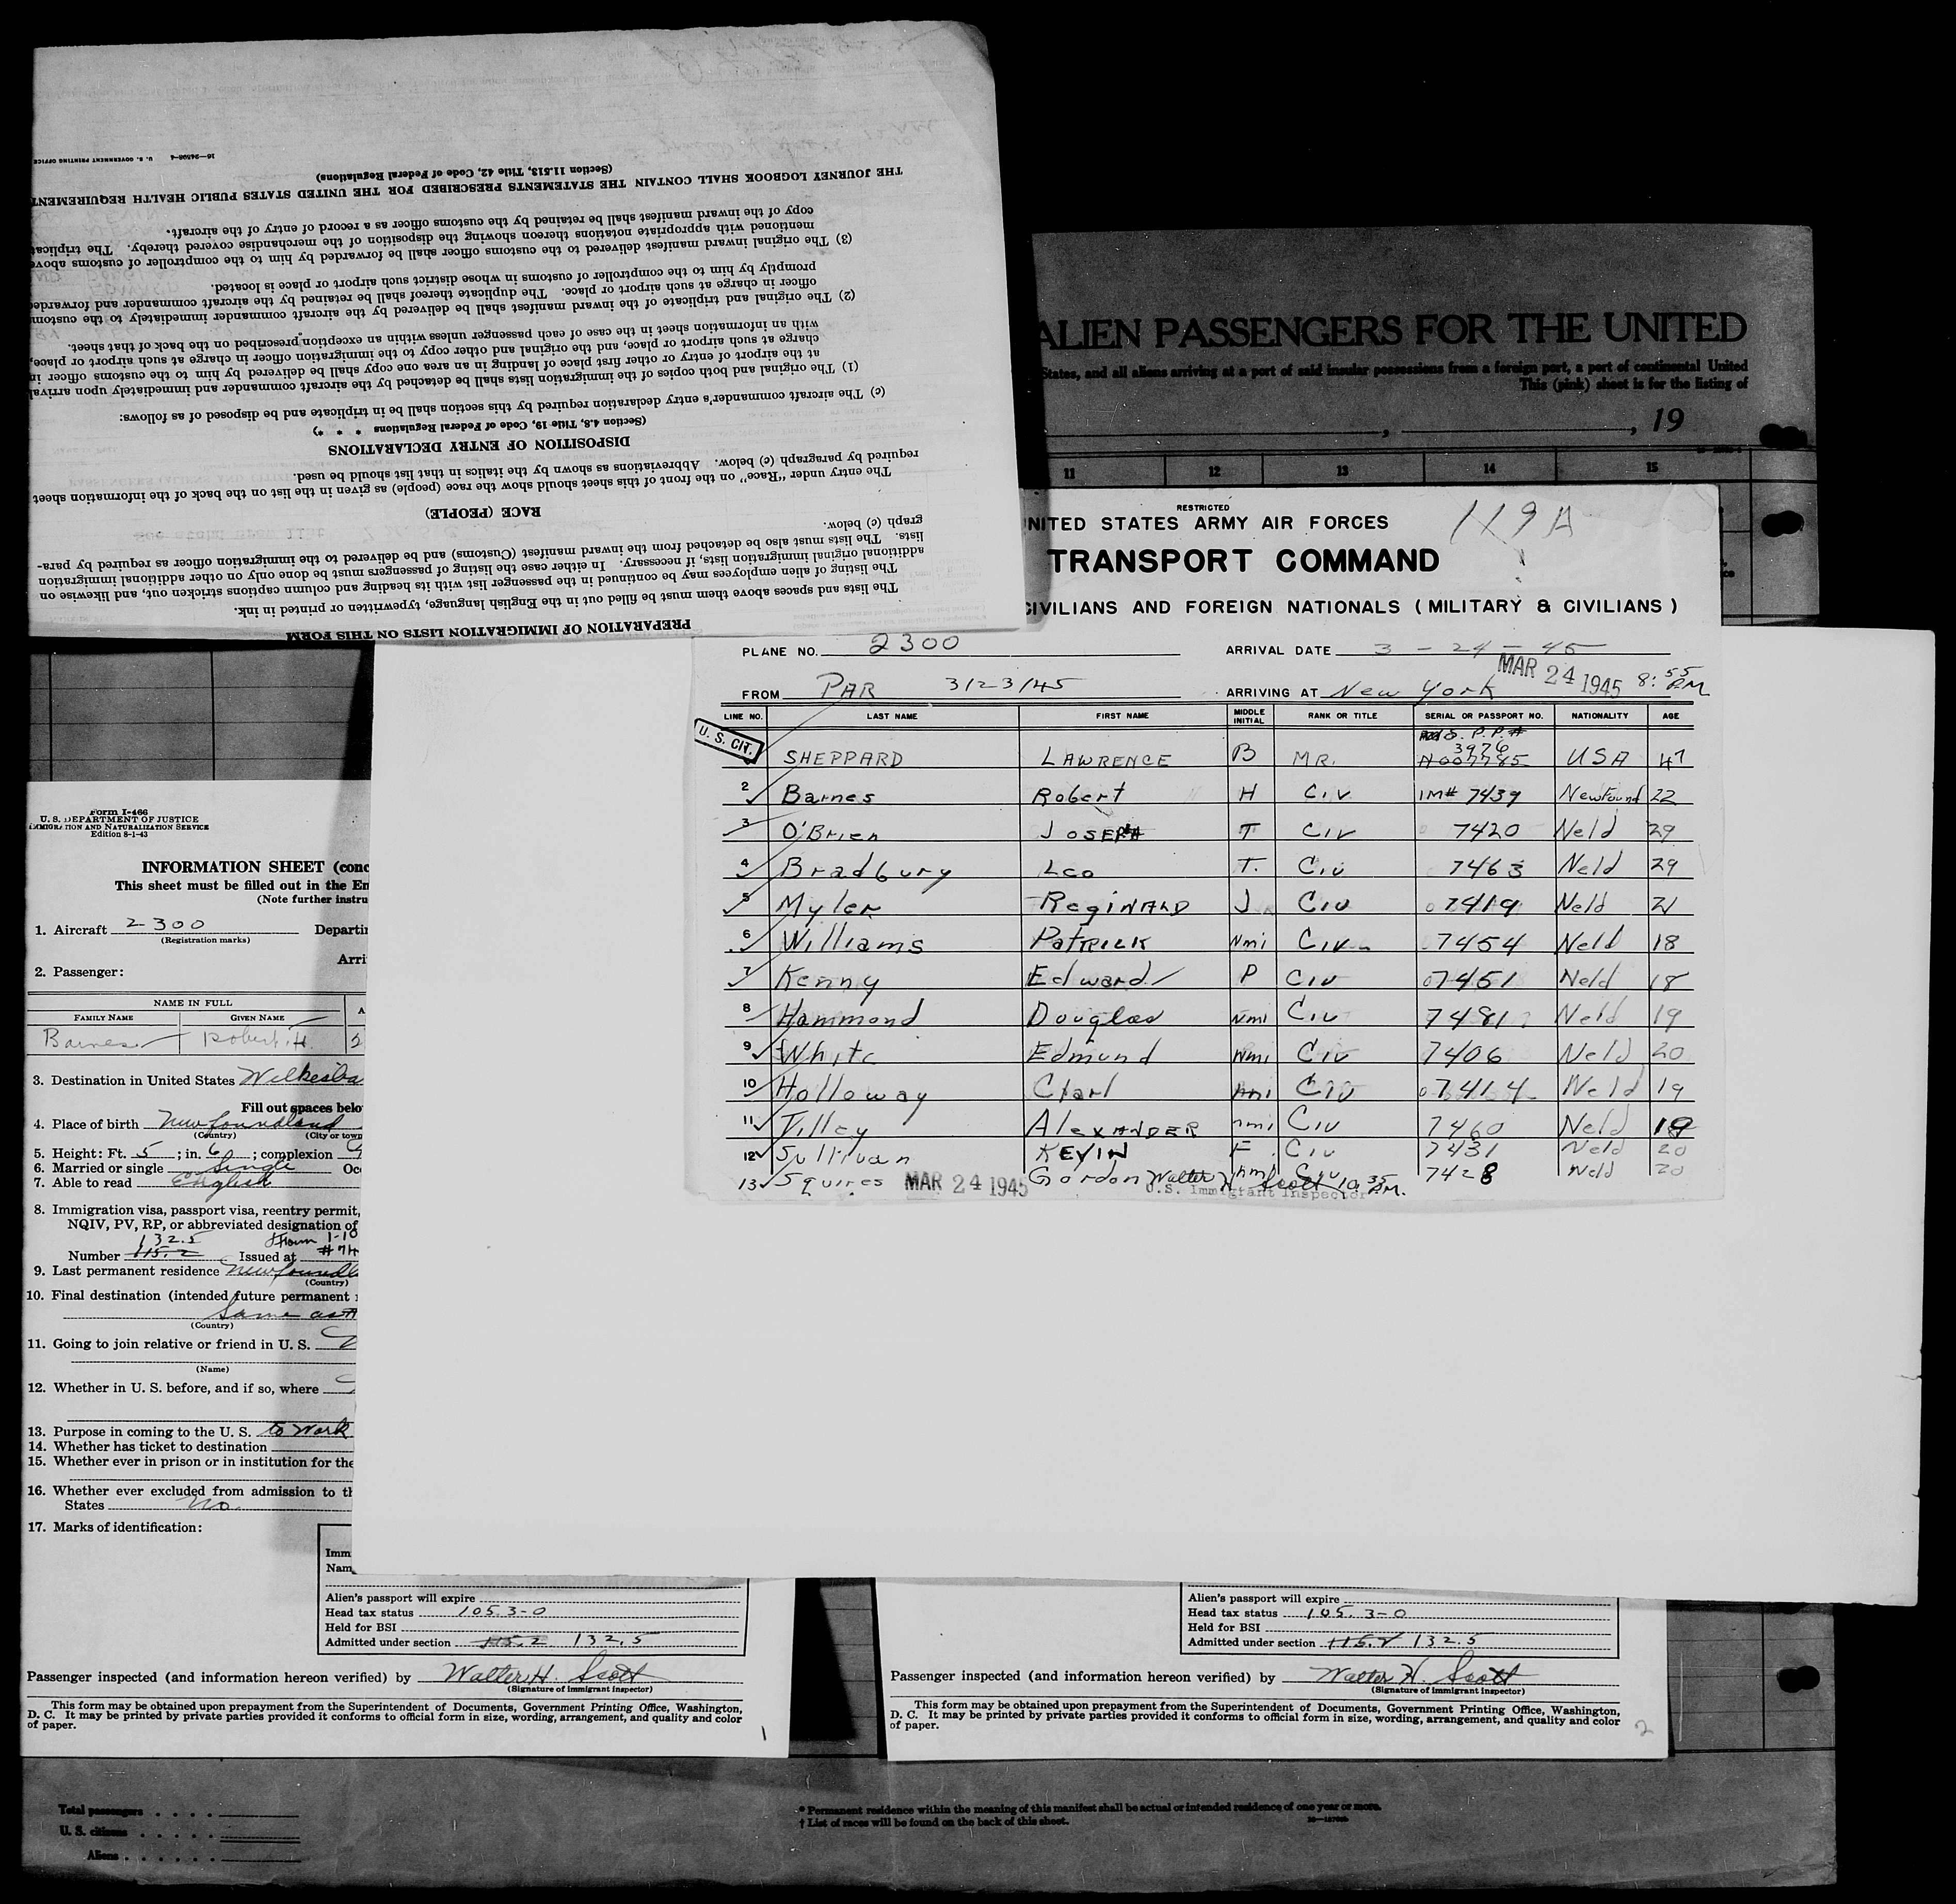 PREPARATION OF IMMIGRATION LISTS ON THIS FORM
The lists and spaces above them must be filled out in the English language, typewritten or printed in ink.
The listing of alien employees may be continued in the passenger list with its heading and column captions stricken out, and likewise on
additional original immigration lists, if necessary. In either case the listing of passengers must be done only on other additional immigration
lists. The lists must also be detached from the inward manifest (Customs) and be delivered to the immigration officer as required by para-
graph (c) below.
RACE (PEOPLE)
The entry under "Race" on the front of this sheet should show the race (people) as given in the list on the back of the information sheet
required by paragraph (c) below. Abbreviations as shown by the italics in that list should be used.
DISPOSITION OF ENTRY DECLARATIONS
(Section 4.8, Title 19, Code of Federal Regulations * * *)
(c) The aircraft commander's entry declaration required by this section shall be in triplicate and be disposed of as follows:
(1) The original and both copies of the immigration lists shall be detached by the aircraft commander and immediately upon arrival
at the airport of entry or other first place of landing in an area one copy shall be delivered by him to the customs officer in
charge at such airport or place, and the original and other copy to the immigration officer in charge at such airport or place,
with an information sheet in the case of each passenger unless within an exception prescribed on the back of that sheet.
(2) The original and triplicate of the inward manifest shall be delivered by the aircraft commander immediately to the customs
officer in charge at such airport or place. The duplicate thereof shall be retained by the aircraft commander and forwarded
promptly by him to the comptroller of customs in whose district such airport or place is located.
(3) The original inward manifest delivered to the customs officer shall be forwarded by him to the comptroller of customs above
mentioned with appropriate notations thereon showing the disposition of the merchandise covered thereby. The triplicat
copy of the inward manifest shall be retained by the customs officer as a record of entry of the aircraft.
THE JOURNEY LOGBOOK SHALL CONTAIN THE STATEMENTS PRESCRIBED FOR THE UNITED STATES PUBLIC HEALTH REQUIREMENT
(Section 11.513, Title 42, Code of Federal Regulations)
16—24808-4 U. S. GOVERNMENT PRINTING OFFICE
ALIEN PASSENGERS FOR THE UNITED
States, and all aliens arriving at a port of said insular possessions from a foreign port, a port of continental United
This (pink) sheet is for the listing of
, , 19
11 12 13 14 15
RESTRICTED
UNITED STATES ARMY AIR FORCES 119A
TRANSPORT COMMAND
CIVILIANS AND FOREIGN NATIONALS (MILITARY & CIVILIANS)
PLANE NO. 2300 ARRIVAL DATE 3-24-45
MAR 24 1945 8:55 PM
FROM PAR 3/23/45 ARRIVING AT New York
LINE NO. LAST NAME FIRST NAME MIDDLE INITIAL RANK OR TITLE SERIAL OR PASSPORT NO. NATIONALITY AGE
U. S. CIT. SHEPPARD LAWRENCE B MR. P.P.# 3976 USA 47
2 Barnes Robert H Civ. IM# 7439 Newfound 22
3 O'Brien JOSEPH T Civ 7420 Nfld 29
4 Bradbury Leo T. Civ 7463 Nfld 29
5 Myler Reginald J Civ 7419 Nfld 21
6 Williams Patrick Nmi Civ. 7454 Nfld 18
7 Kenny Edward P Civ 7451 Nfld 18
8 Hammond Douglas Nmi Civ 7481 Nfld 19
9 White Edmund Nmi Civ 7406 Nfld 20
10 Holloway Clarl nmi Civ 7414 Nfld 19
11 Tilley Alexander nmi Civ 7460 Nfld 19
12 Sullivan KEVIN F. Civ 7431 Nfld 20
13 Squires MAR 24 1945 Gordon nmi Civ 7428 Nfld 20
Walter H. Scott 10 35 PM.
U.S. Immigrant Inspector
Form I-466
U. S. DEPARTMENT OF JUSTICE
IMMIGRATION AND NATURALIZATION SERVICE
Edition 8-1-43
INFORMATION SHEET (conc
This sheet must be filled out in the En
(Note further instru
1. Aircraft 2300 Departi
(Registration marks)
Arri
2. Passenger:
NAME IN FULL A
FAMILY NAME GIVEN NAME
Barnes Robert H. 2
3. Destination in United States Wilkesba
Fill out spaces belo
4. Place of birth Newfoundland
(Country) (City or town
5. Height: Ft. 5; in. 6; complexion
6. Married or single Single Occ
7. Able to read English
8. Immigration visa, passport visa, reentry permit,
NQIV, PV, RP, or abbreviated designation of
132.5 Form 1-10
Number 115.2 Issued at #74
9. Last permanent residence Newfoundl
(Country)
10. Final destination (intended future permanent
Same as #
(Country)
11. Going to join relative or friend in U. S.
(Name)
12. Whether in U. S. before, and if so, where
13. Purpose in coming to the U. S. to work
14. Whether has ticket to destination
15. Whether ever in prison or in institution for the
16. Whether ever excluded from admission to th
States no.
17. Marks of identification:
Imm
Nam
Alien's passport will expire
Head tax status 105.3-0
Held for BSI
Admitted under section 115.2 132.5
Passenger inspected (and information hereon verified) by Walter H. Scott
(Signature of immigrant inspector)
This form may be obtained upon prepayment from the Superintendent of Documents, Government Printing Office, Washington,
D. C. It may be printed by private parties provided it conforms to official form in size, wording, arrangement, and quality and color
of paper. 1
Alien's passport will expire
Head tax status 105.3-0
Held for BSI
Admitted under section 115.2 132.5
Passenger inspected (and information hereon verified) by Walter H. Scott
(Signature of immigrant inspector)
This form may be obtained upon prepayment from the Superintendent of Documents, Government Printing Office, Washington,
D. C. It may be printed by private parties provided it conforms to official form in size, wording, arrangement, and quality and color
of paper. 2
Total passengers
U. S. citizens
Aliens
* Permanent residence within the meaning of this manifest shall be actual or intended residence of one year or more.
† List of races will be found on the back of this sheet.